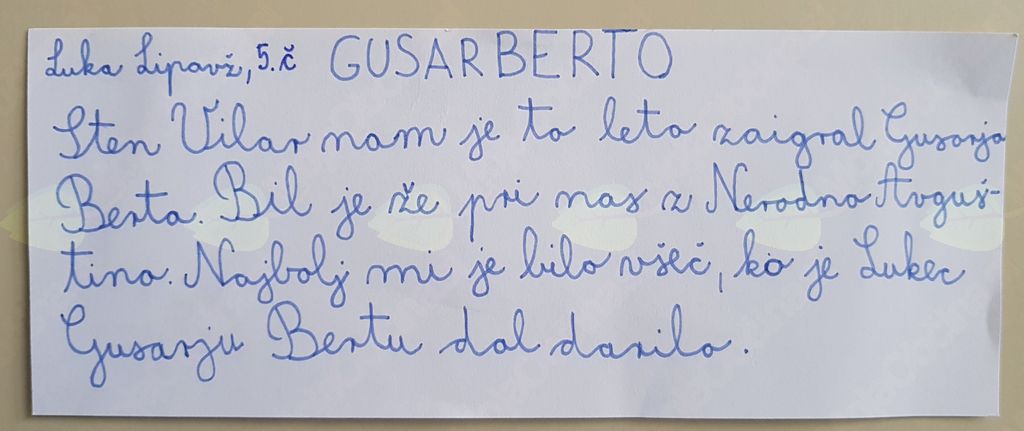 Luka Lipavž, 5.č GUSAR BERTO
Sten Vilar nam je to leto zaigral Gusarja
Berta. Bil je že pri nas z Nerodno Avguš-
tino. Najbolj mi je bilo všeč, ko je Lukec
Gusarju Bertu dal darilo.